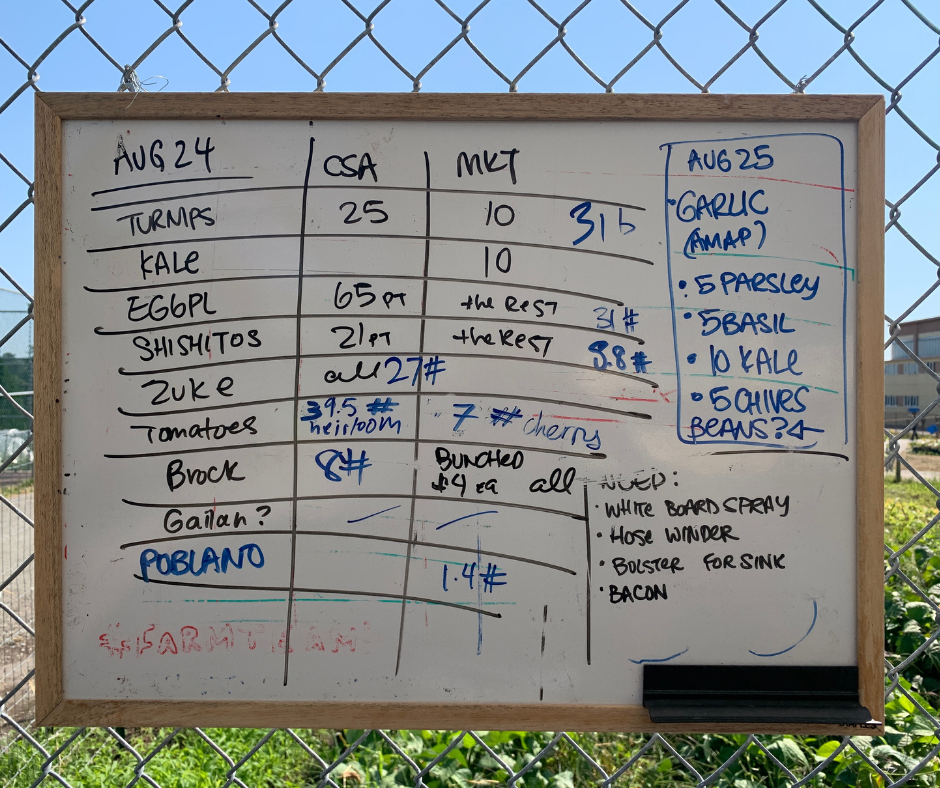 AUG 24 CSA MKT
TURNIPS 25 10 31 b
KALE 10
EGGPL 65 PT the REST 31#
SHISHITOS 21 PT the REST 8.8#
ZUKE all 27#
Tomatoes 39.5 # heirloom 7 # cherry
BROCK 8# BUNCHED
$4 ea all
Gailan?
POBLANO 1.4#
#FARMTEAM
AUG 25
• GARLIC
(AMAP)
• 5 PARSLEY
• 5 BASIL
• 10 KALE
• 5 CHIVES
BEANS?
NEED:
• WHITE BOARD SPRAY
• HOSE WINDER
• BOLSTER FOR SINK
• BACON